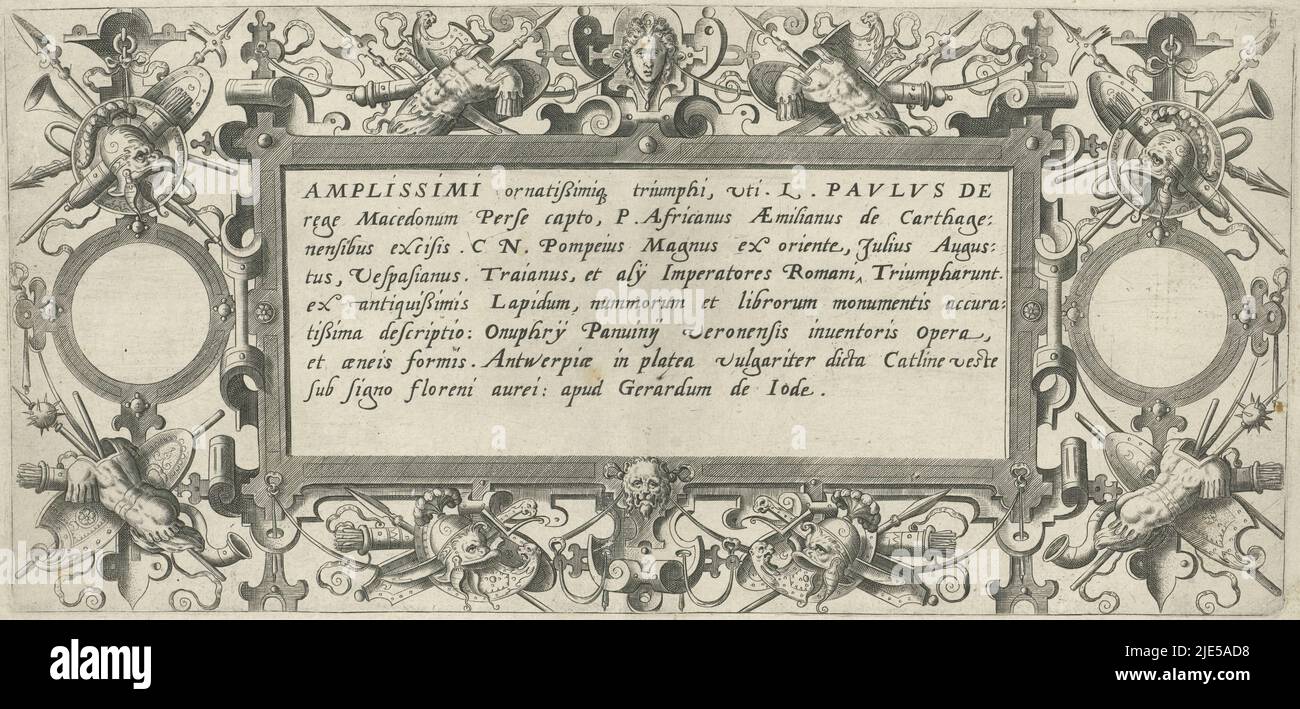 AMPLISSIMI ornatißimiq₃ triumphi, vti. L. PAVLVS DE
rege Macedonum Perse capto, P. Africanus Æmilianus de Carthage:
nensibus excisis. C N. Pompeius Magnus ex oriente, Julius Augus-
tus, Vespasianus. Traianus, et alÿ Imperatores Romani, Triumpharunt.
ex antiquißimis Lapidum, nummorum et librorum monumentis accura:
tißima descriptio: Onuphrÿ Panuinÿ Veronensis inventoris Opera,
et æneis formis. Antwerpiæ in platea vulgariter dicta Catline veste
sub signo floreni aurei: apud Gerardum de Iode.
alamy
alamy
Image ID: 2JE5AD8
www.alamy.com